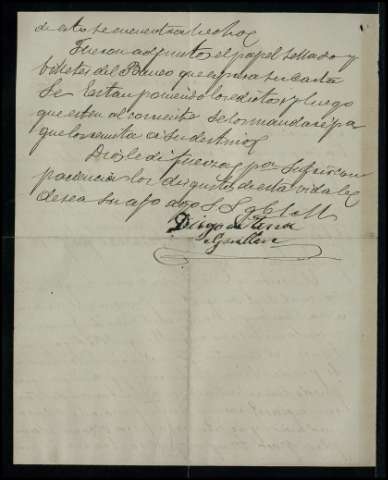 de esto se encuentra hecho
Fueron adjuntos el papel sellado y
billetes del Banco que espresa su carta
Se estan poniendo los edictos y luego
que esten al corriente se los mandaré pa
que los remita a su destino
Dios le dé fuerzas pa sufrir con
paciencia los disgustos de esta vida le
desea su afo S S
Diego de
Guillen